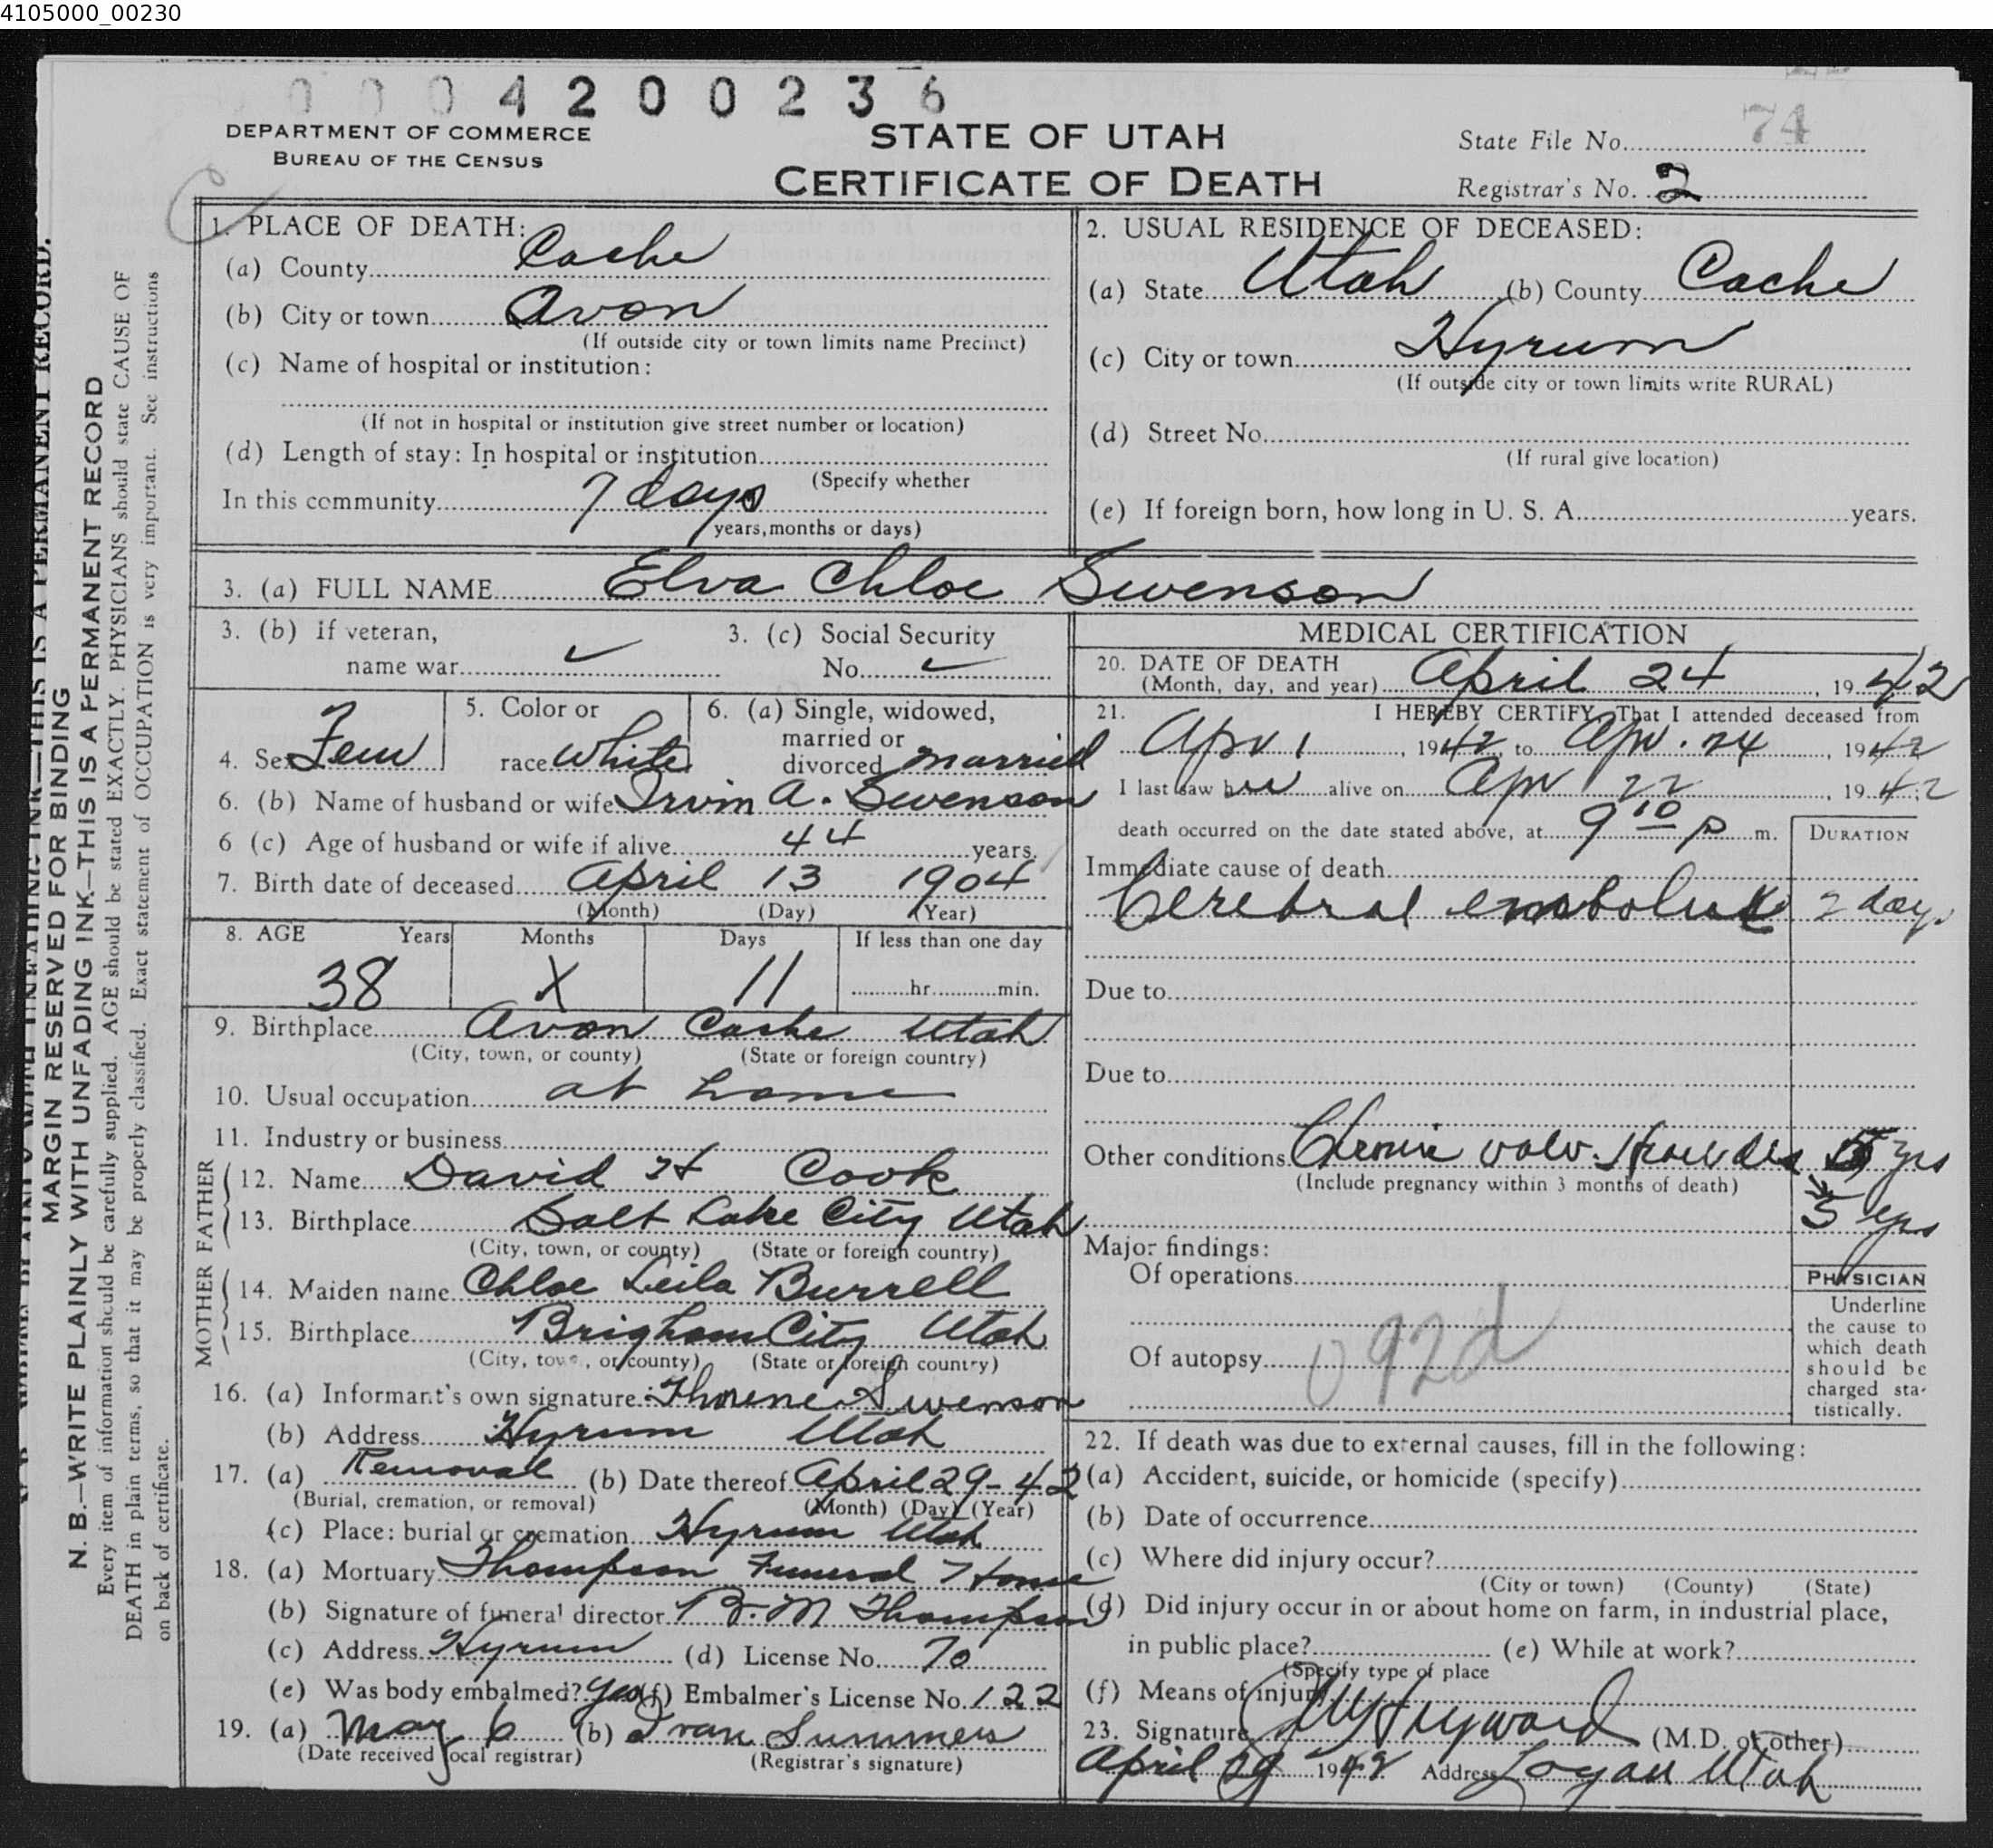 4105000_00230
0004200236
DEPARTMENT OF COMMERCE
BUREAU OF THE CENSUS
STATE OF UTAH
CERTIFICATE OF DEATH
State File No. 74
Registrar's No. 2
MARGIN RESERVED FOR BINDING
N. B.—WRITE PLAINLY WITH UNFADING INK—THIS IS A PERMANENT RECORD
Every item of information should be carefully supplied. AGE should be stated EXACTLY. PHYSICIANS should state CAUSE OF
DEATH in plain terms, so that it may be properly classified. Exact statement of OCCUPATION is very important. See instructions
on back of certificate.
1. PLACE OF DEATH:
(a) County Cache
(b) City or town Avon
(If outside city or town limits name Precinct)
(c) Name of hospital or institution:
(If not in hospital or institution give street number or location)
(d) Length of stay: In hospital or institution
(Specify whether
In this community 7 days
years, months or days)
2. USUAL RESIDENCE OF DECEASED:
(a) State Utah (b) County Cache
(c) City or town Hyrum
(If outside city or town limits write RURAL)
(d) Street No.
(If rural give location)
(e) If foreign born, how long in U. S. A. years.
3. (a) FULL NAME Elva Chloe Swenson
3. (b) if veteran,
name war ✓
3. (c) Social Security
No. ✓
4. Sex Fem
5. Color or
race White
6. (a) Single, widowed,
married or
divorced married
6. (b) Name of husband or wife Irvin A. Swenson
6 (c) Age of husband or wife if alive 44 years.
7. Birth date of deceased April 13 1904
(Month) (Day) (Year)
8. AGE Years Months Days If less than one day
38 X 11 hr. min.
9. Birthplace Avon Cache Utah
(City, town, or county) (State or foreign country)
10. Usual occupation at home
11. Industry or business
FATHER
12. Name David H Cook
13. Birthplace Salt Lake City Utah
(City, town, or county) (State or foreign country)
MOTHER
14. Maiden name Chloe Leila Burrell
15. Birthplace Brigham City Utah
(City, town, or county) (State or foreign country)
16. (a) Informant's own signature: Swenson
(b) Address Hyrum Utah
17. (a) Removal (b) Date thereof April 29-42
(Burial, cremation, or removal) (Month) (Day) (Year)
(c) Place: burial or cremation Hyrum Utah
18. (a) Mortuary Thompson Funeral Home
(b) Signature of funeral director B. M Thompson
(c) Address Hyrum (d) License No. 70
(e) Was body embalmed? Yes (f) Embalmer's License No. 122
19. (a) May 6 (b) Ivan Summers
(Date received local registrar) (Registrar's signature)
MEDICAL CERTIFICATION
20. DATE OF DEATH
(Month, day, and year) April 24, 1942
21. I HEREBY CERTIFY, That I attended deceased from
Apr 1, 1942, to Apr. 24, 1942
I last saw her alive on Apr 22, 1942
death occurred on the date stated above, at 9 10 p m.
DURATION
Immediate cause of death
Cerebral embolus 2 days
Due to
Due to
Other conditions Chronic valv. 5 yrs
(Include pregnancy within 3 months of death)
5 yrs
Major findings:
Of operations
Of autopsy
092d
PHYSICIAN
Underline
the cause to
which death
should be
charged sta-
tistically.
22. If death was due to external causes, fill in the following:
(a) Accident, suicide, or homicide (specify)
(b) Date of occurrence
(c) Where did injury occur?
(City or town) (County) (State)
(d) Did injury occur in or about home on farm, in industrial place,
in public place? (e) While at work?
(Specify type of place
(f) Means of injury
23. Signature Hayward (M.D. or other)
April 29 1942 Address Logan Utah